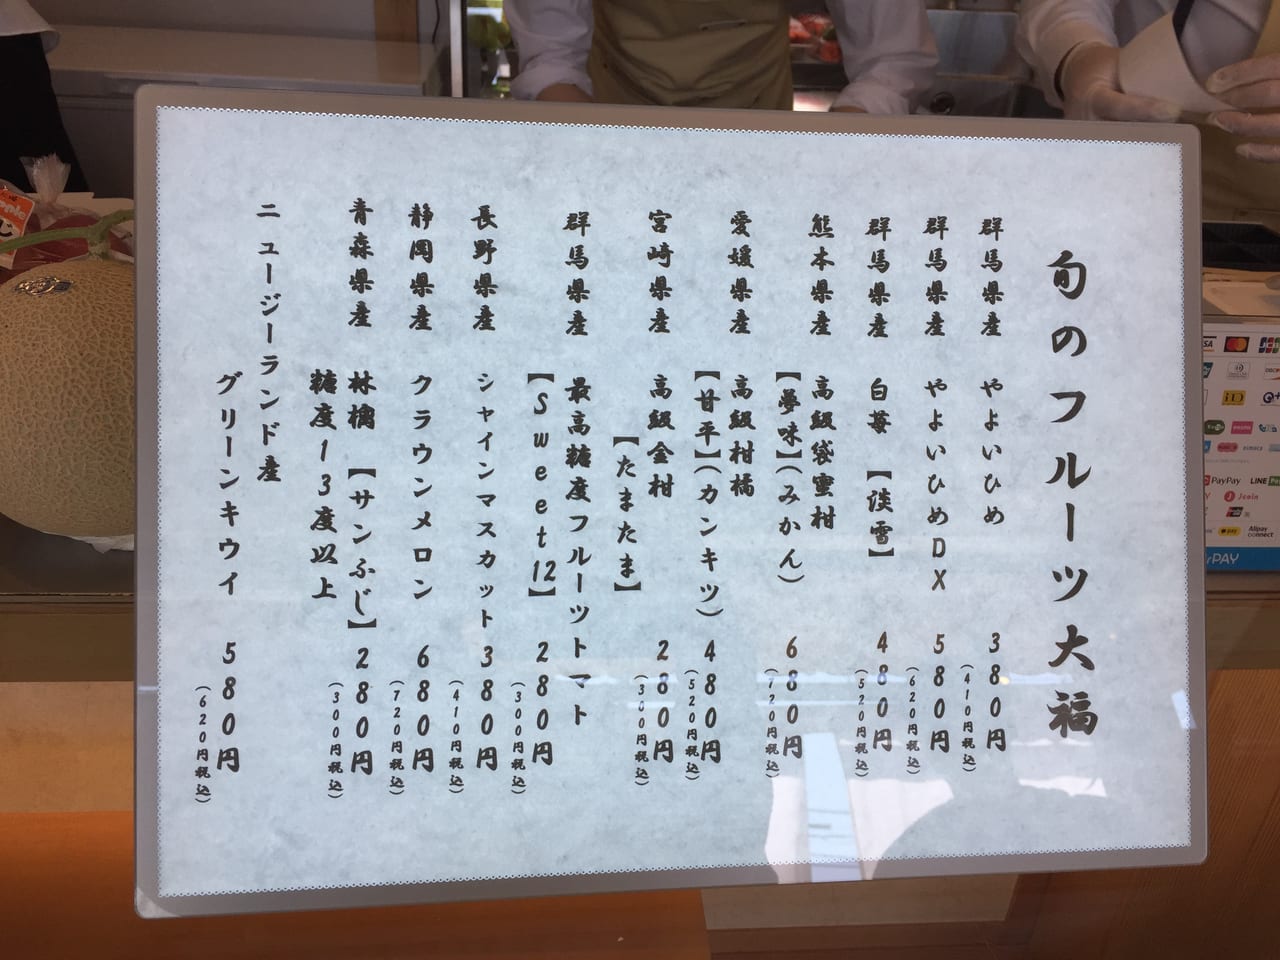 旬のフルーツ大福
群馬県産 やよいひめ 380円
(410円税込)
群馬県産 やよいひめDX 580円
(620円税込)
群馬県産 白苺 【淡雪】 480円
(520円税込)
熊本県産 高級袋蜜柑
【夢味】(みかん) 680円
(720円税込)
愛媛県産 高級柑橘
【甘平】(カンキツ) 480円
(520円税込)
宮崎県産 高級金柑
【たまたま】 280円
(300円税込)
群馬県産 最高糖度フルーツトマト
【Sweet12】 280円
(300円税込)
長野県産 シャインマスカット 380円
(410円税込)
静岡県産 クラウンメロン 680円
(720円税込)
青森県産 林檎 【サンふじ】 280円
糖度13度以上
(300円税込)
ニュージーランド産
グリーンキウイ 580円
(620円税込)
VISA
JCB
iD
PayPay
LINE P
J coin
Alipay
connect
PAY